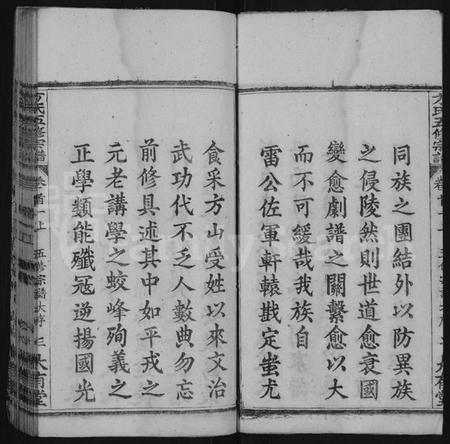 同族之團結外以防異族
之侵陵然則世道愈衰國
變愈劇譜之關繫愈以大
而不可緩哉我族自
雷公佐軍軒轅戡定蚩尤
食采方山受姓以來文治
武功代不乏人數典勿忘
前修具述其中如平戎之
元老講學之蛟峰殉義之
正學類能殲冠逆揚國光
方氏五修宗譜
卷首上
五修宗譜大序